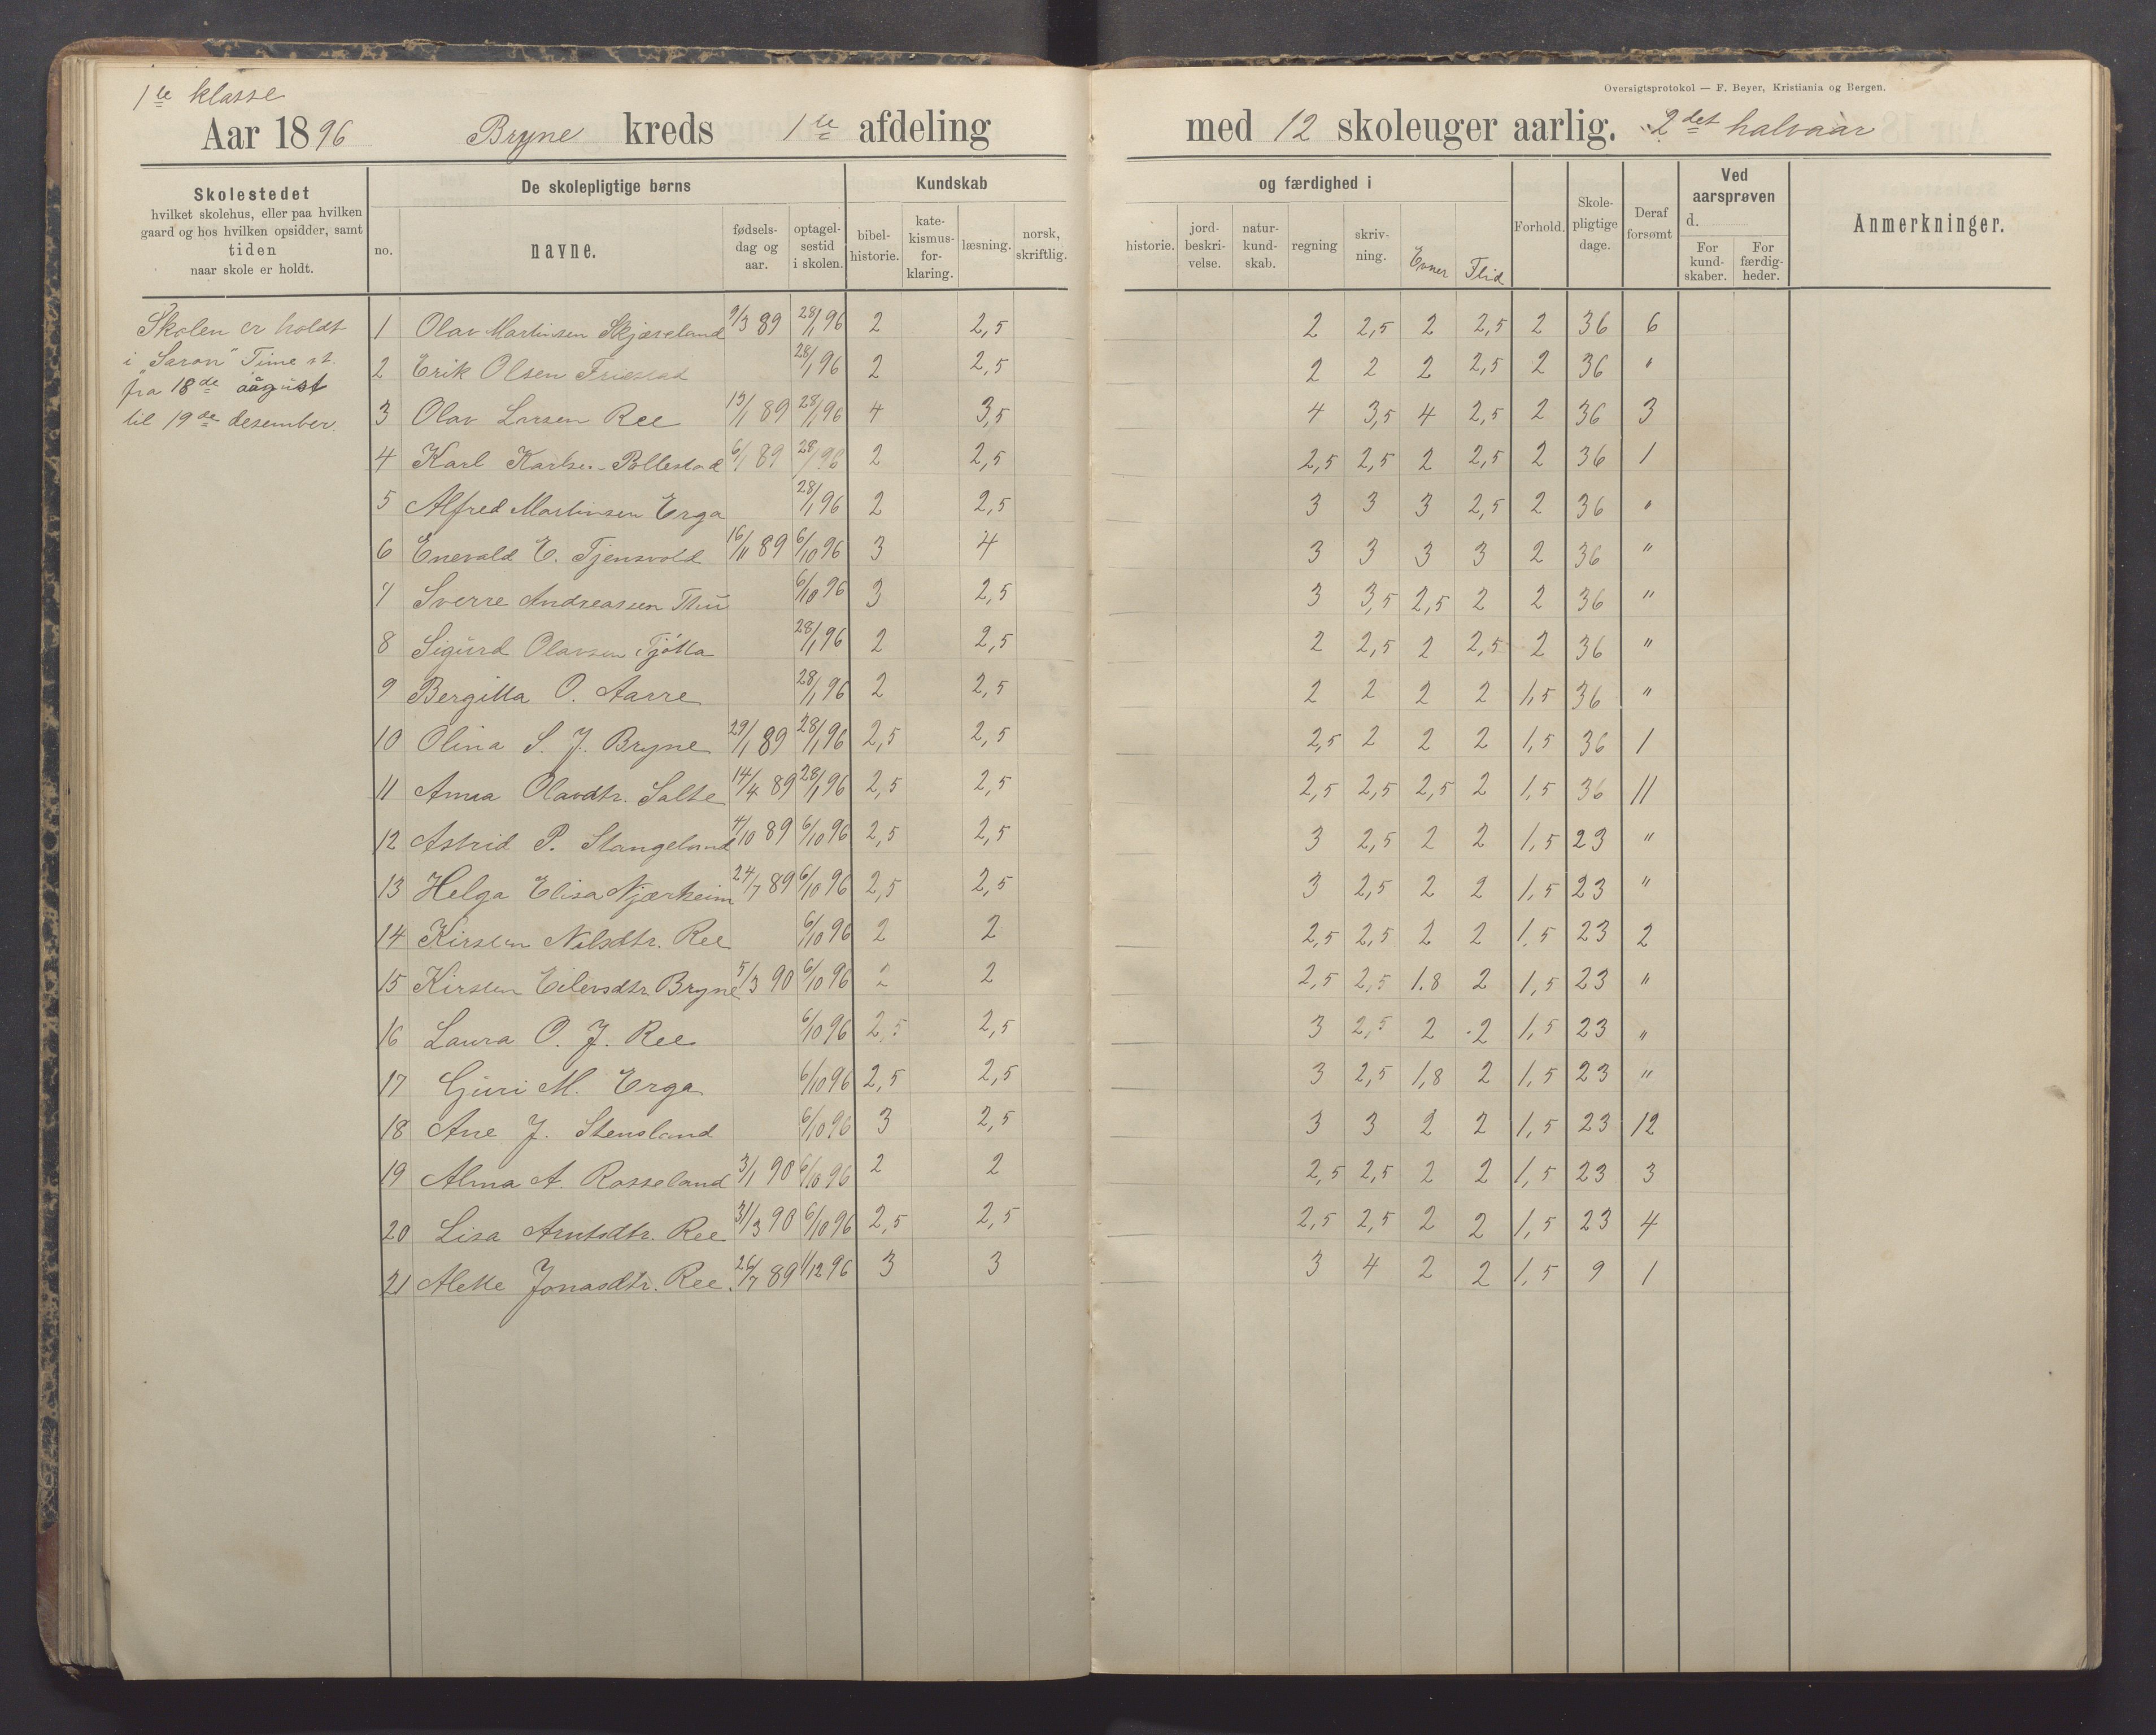 1te klasse
Oversigtsprotokol — F. Beyer, Kristiania og Bergen.
Aar 1896 Bryne kreds 1te afdeling med 12 skoleuger aarlig. 2det halvaar
Skolestedet
hvilket skolehus, eller paa hvilken
gaard og hos hvilken opsidder, samt
tiden
naar skole er holdt.
De skolepligtige børns
no.
navne.
fødsels-
dag og
aar.
optagel-
sestid
i skolen.
Kundskab
bibel-
historie.
kate-
kismus-
for-
klaring.
læsning.
norsk,
skriftlig.
og færdighed i
historie.
jord-
beskri-
velse.
natur-
kund-
skab.
regning
skriv-
ning.
Evner
Flid
Forhold.
Skole-
pligtige
dage.
Deraf
forsømt
Ved
aarsprøven
d.
For
kund-
skaber.
For
færdig-
heder.
Anmerkninger.
Skolen er holdt
i "Saron" Time st.
fra 18de august
til 19de desember.
1 Olav Martinsen Skjæveland 9/3 89 28/1 96 2 2,5 2 2,5 2 2,5 2 36 6
2 Erik Olsen Friestad 28/1 96 2 2,5 2 2 2 2,5 2 36 "
3 Olav Larsen Ree 28/1 96 4 3,5 4 3,5 4 2,5 2 36 3
4 Karl Karlsen Pollestad 6/1 89 28/1 96 2 2,5 2,5 2,5 2 2,5 2 36 1
5 Alfred Martinsen Erga 28/1 96 2 2,5 3 3 3 2,5 2 36 "
6 Enevald E. Tjensvold 16/11 89 6/10 96 3 4 3 3 3 3 2 36 "
7 Sverre Andreassen Thu 6/10 96 3 2,5 3 3,5 2,5 2 2 36 "
8 Sigurd Olavsen Tjøtta 28/1 96 2 2,5 2 2,5 2 2,5 2 36 "
9 Bergitta O. Aarre 28/1 96 2 2,5 2 2 2 2 1,5 36 "
10 Olina S. J. Bryne 29/1 89 28/1 96 2,5 2,5 2,5 2 2 2 1,5 36 1
11 Anna Olavdtr. Salte 14/4 89 28/1 96 2,5 2,5 2,5 2,5 2,5 2 1,5 36 11
12 Astrid P. Stangeland 4/10 89 6/10 96 2,5 2,5 3 2,5 2 2 1,5 23 "
13 Helga Elisa Njærheim 24/7 89 6/10 96 2,5 2,5 3 2,5 2 2 1,5 23 "
14 Kirsten Nilsdtr. Ree 6/10 96 2 2 2,5 2,5 2 2 1,5 23 2
15 Kirsten Eilevsdtr. Bryne 5/3 90 6/10 96 2 2 2,5 2,5 1.8 2 1,5 23 "
16 Laura O. J. Ree 6/10 96 2,5 2,5 3 2,5 2 2 1,5 23 "
17 Guri M. Erga 6/10 96 2,5 2,5 3 2,5 1,8 2 1,5 23 "
18 Ane J. Stensland 6/10 96 3 2,5 3 3 2 2 1,5 23 12
19 Alma A. Rosseland 3/1 90 6/10 96 2 2 2,5 2,5 2 2 1,5 23 3
20 Lisa Arntsdtr. Ree 31/3 90 6/10 96 2,5 2,5 2,5 2,5 2 2 1,5 23 4
21 Alette Jonasdtr. Ree. 26/7 89 1/12 96 3 3 3 4 2 2 1,5 9 1